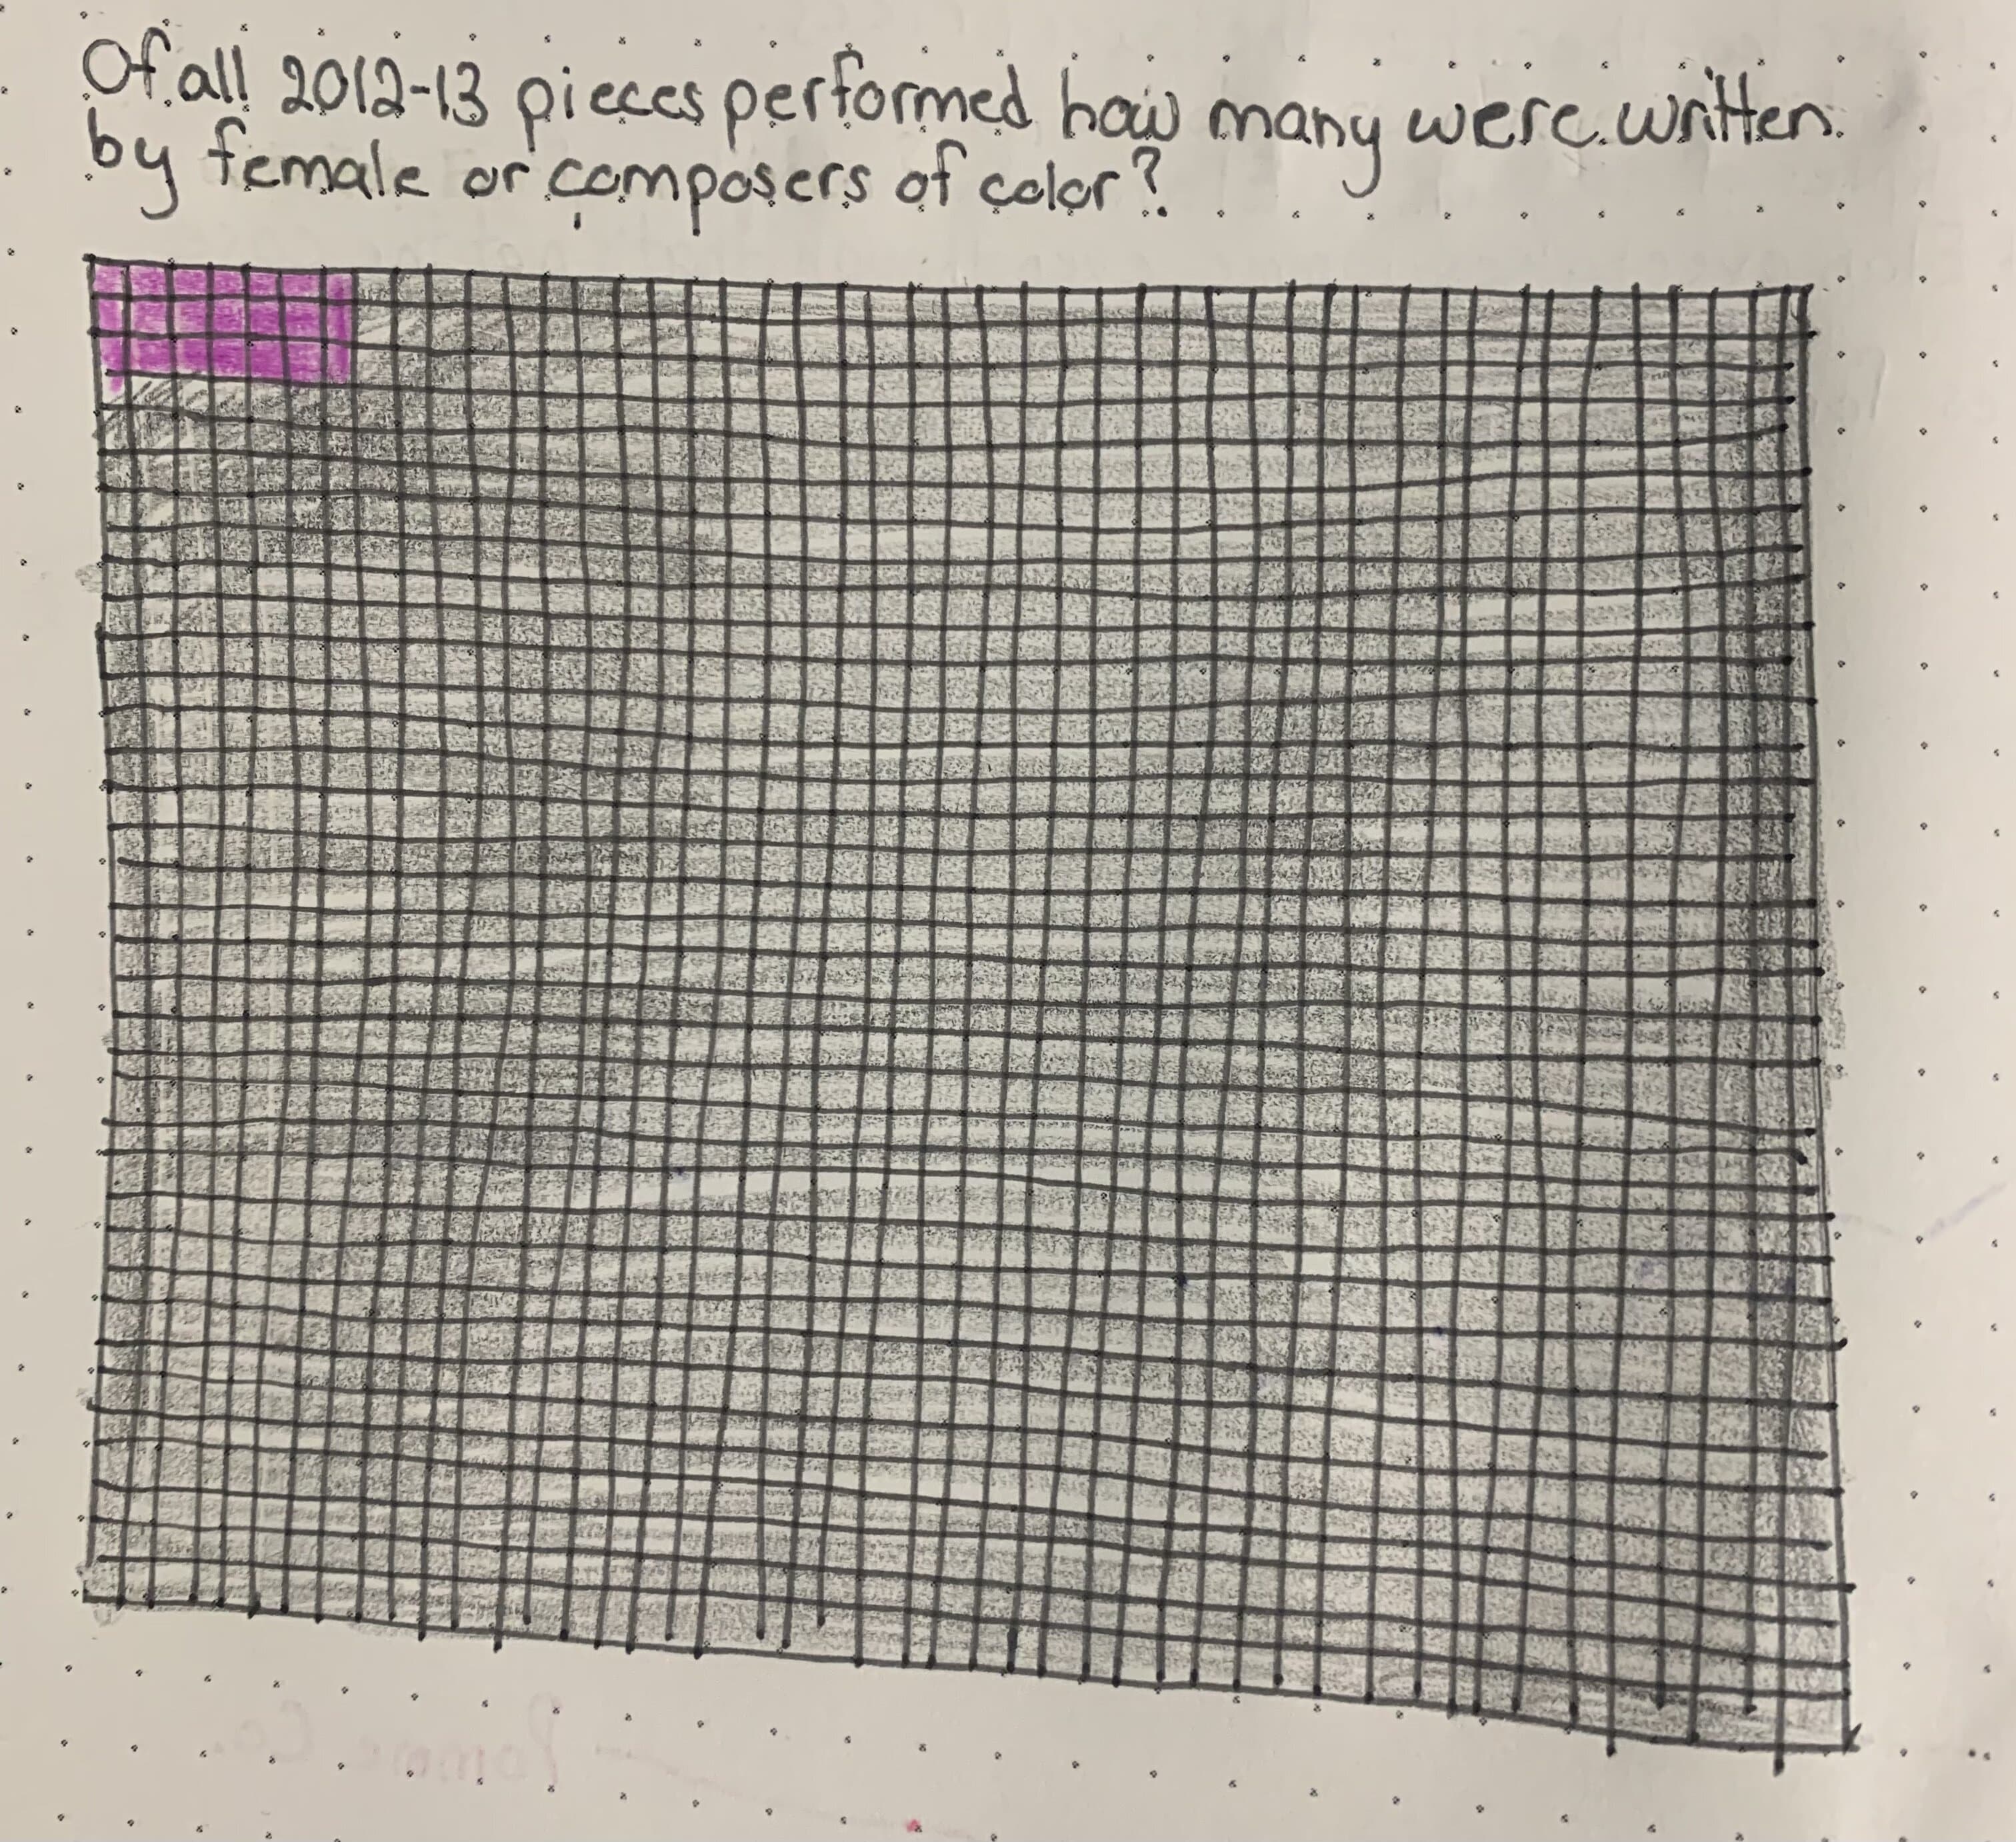 Of all 2012-13 pieces performed how many were written
by female or composers of color?